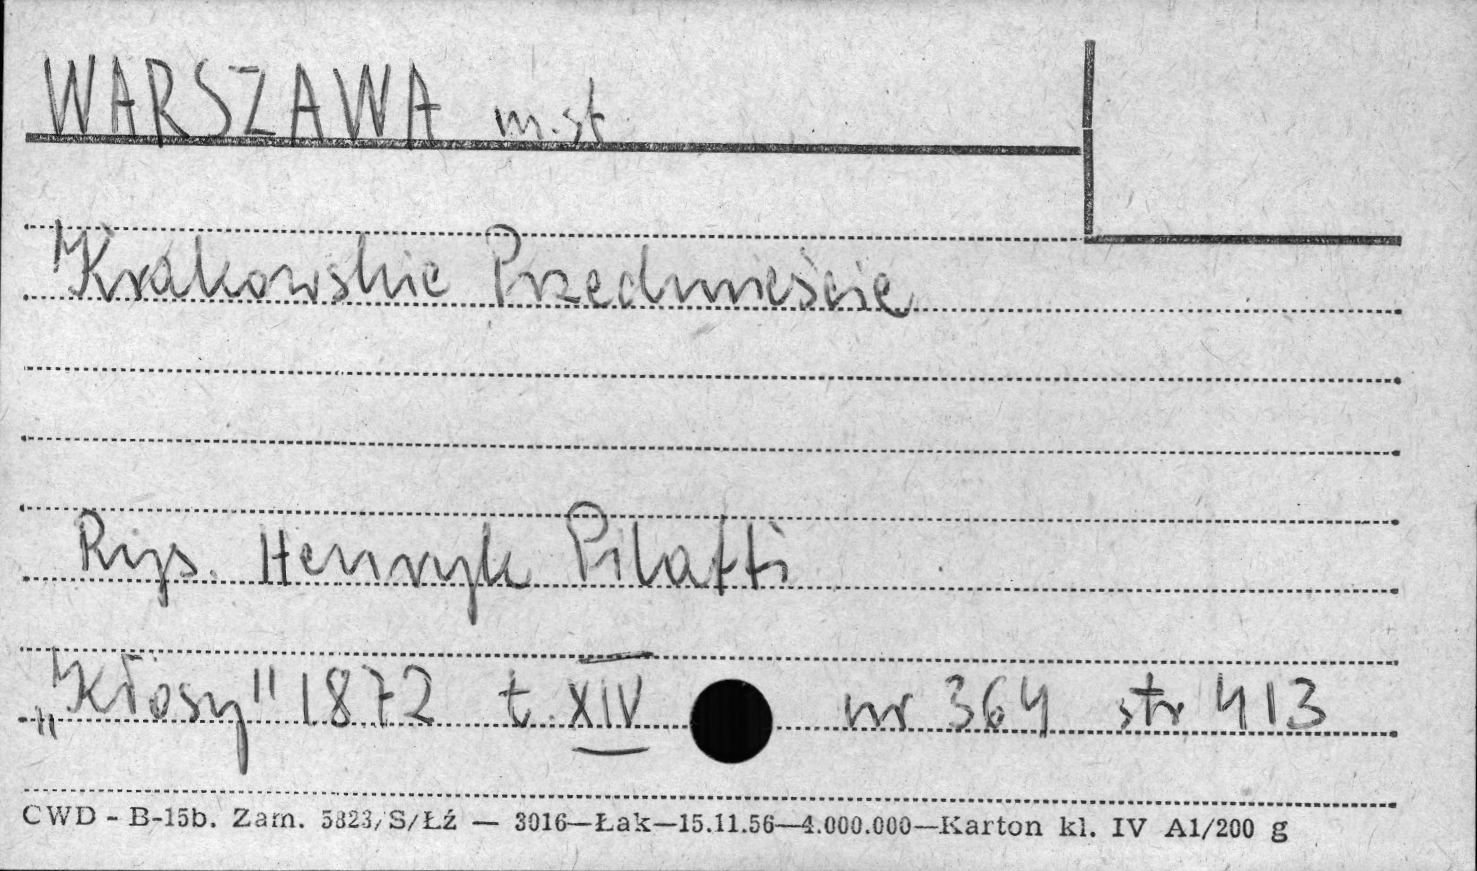 WARSZAWA m.st
Krakowskie Przedmieście
Rys. Henryk Pilatti
„Kłosy" 1872 t. XIV nr 364 str 413
CWD - B-15b. Zam. 5823/S/Łź — 3016—Łak—15.11.56—4.000.000—Karton kl. IV A1/200 g